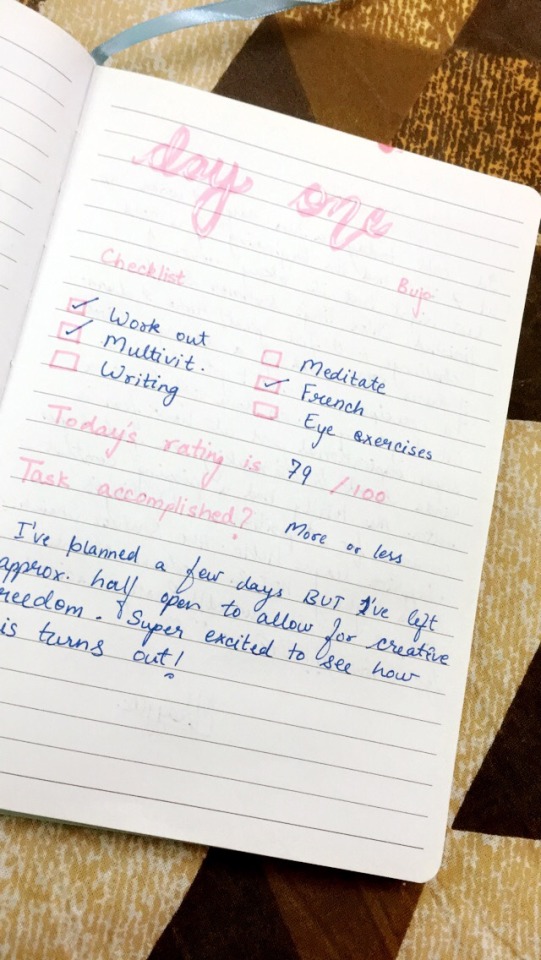 day one
Checklist
Bujo
Work out
Multivit.
Writing
Meditate
French
Eye exercises
Today's rating is 79 /100
Task accomplished? More or less
I've planned a few days BUT I've left
approx. half open to allow for creative
reedom. Super excited to see how
is turns out!